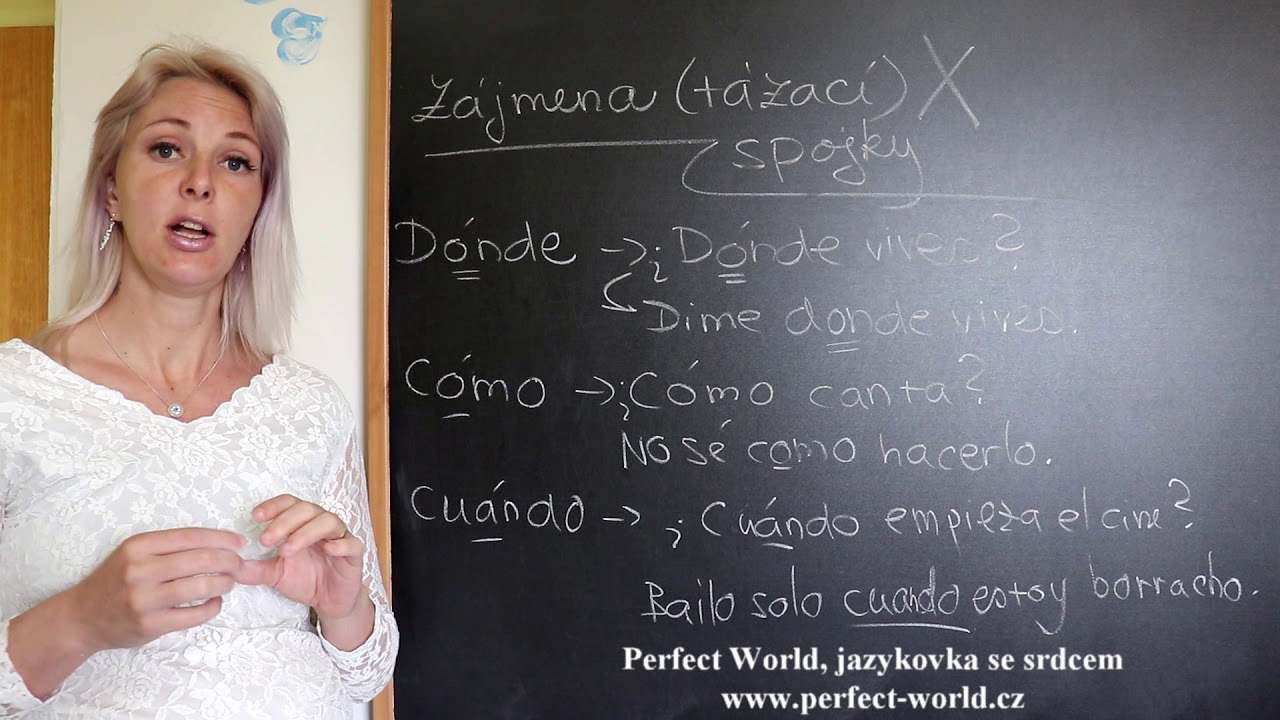 Zájmena (tázací) X
spojky
Dónde → ¿Dónde vives?
Dime donde vives.
Cómo → ¿Cómo canta?
No sé como hacerlo.
Cuándo → ¿Cuándo empieza el cine?
Bailo solo cuando estoy borracho.
Perfect World, jazykovka se srdcem
www.perfect-world.cz